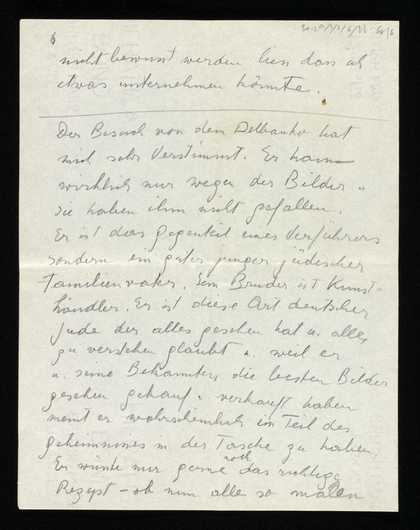 6
nicht bewusst werden liess dass ich
etwas unternehmen könnte.
Der Besuch von dem Delbanko hat
mich sehr verstimmt. Er kam
wirklich nur wegen der Bilder u
sie haben ihm nicht gefallen.
Er ist das Gegenteil eines Verführers
sondern ein guter junger jüdischer
Familienvater. Sein Bruder ist Kunst-
händler. Er ist diese Art deutscher
Jude der alles gesehen hat u. alles
zu verstehen glaubt u. weil er
u. seine Bekannten die besten Bilder
gesehen gekauft u verkauft haben
meint er wahrscheinlich ein Teil des
geheimnisses in der Tasche zu haben.
Er würde mir gerne das richtige
Rezept – ob nun alle so malen